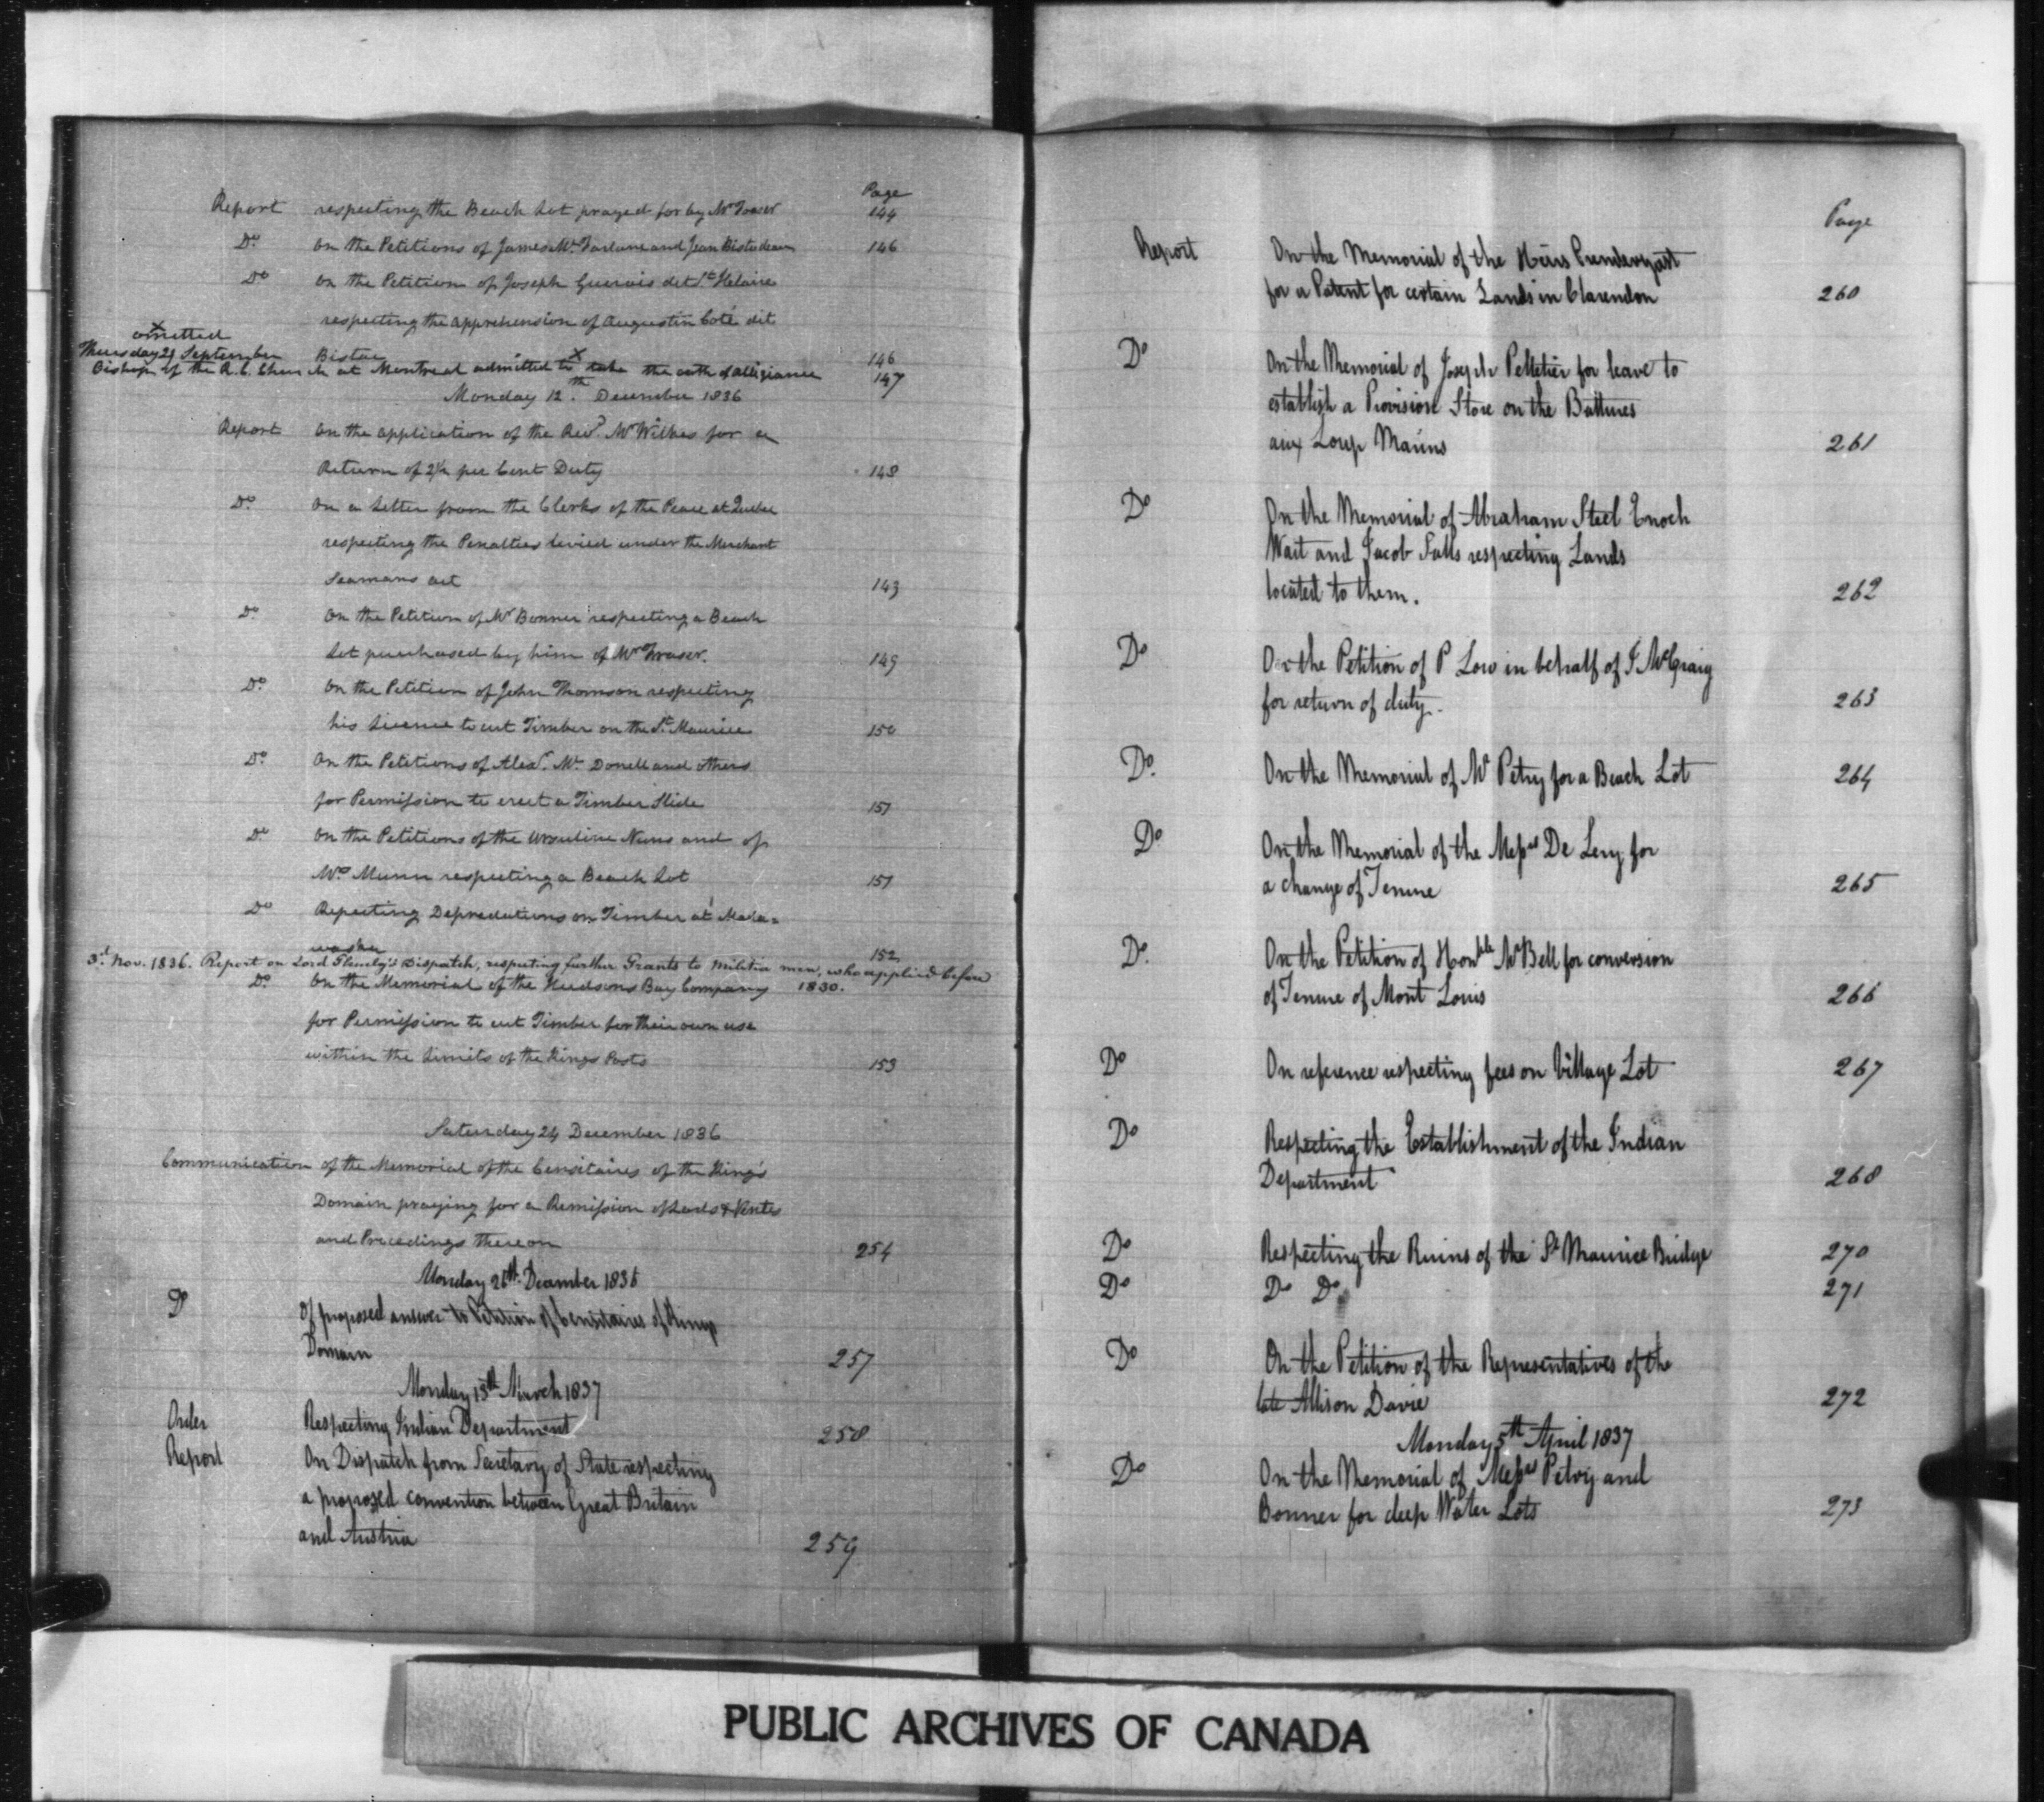 Page
Report respecting the Beach Lot prayed for by Mr Fraser 144
Do On the Petitions of James McFarlane and Jean Bistodeau 146
Do On the Petition of Joseph Guervis dit St Helaire
respecting the apprehension of Augustin Coté dit
Bistac 146
x omitted
Thursday 29 September
Bishop of the R. C. Church at Montreal admitted to x take the oath of allegiance 147
Monday 12th December 1836
Report On the application of the Revd. Mr Wilkes for a
Return of 2½ per Cent Duty 148
Do. On a Letter from the Clerks of the Peace at Quebec
respecting the Penalties levied under the Merchant
Seamans act 149
Do. On the Petition of Mr Bonner respecting a Beach
Lot purchased by him of Mr Fraser. 149
Do. On the Petition of John Thomson respecting
his Licence to cut Timber on the St. Maurice 150
Do. On the Petitions of Alexr. Mc Donell and others
for Permission to erect a Timber Slide 151
Do. On the Petitions of the Ursuline Nuns and of
Munn respecting a Beach Lot 151
Do Respecting Depredations on Timber at Mada=
waska 152
3d. Nov. 1836. Report on Lord Glenelg's Dispatch, respecting further Grants to Militia men, who applied before
1830.
Do. On the Memorial of the Hudsons Bay Company
for Permission to cut Timber for their own use
within the Limits of the Kings Posts 153
Saturday 24 December 1836
Communication of the Memorial of the Censitaires of the King's
Domain praying for a Remission of Lods & Ventes
and Proceedings thereon 254
Monday 26th December 1836
Do Of proposed answer to Petition of Censitaires of Kings
Domain 257
Monday 13th March 1837
Order Respecting Indian Department 258
Report On Dispatch from Secretary of State respecting
a proposed convention between Great Britain
and Austria 259
Page
Report On the Memorial of the Heirs Prendergast
for a Patent for certain Lands in Clarendon 260
Do On the Memorial of Joseph Pelletier for leave to
establish a Provision Store on the Battures
aux Loup Marins 261
Do On the Memorial of Abraham Steel Enoch
Wait and Jacob Falls respecting Lands
located to them. 262
Do On the Petition of P Low in behalf of J McCraig
for return of duty. 263
Do. On the Memorial of Mr Petry for a Beach Lot 264
Do On the Memorial of the Messrs De Lery for
a change of Tenure 265
Do. On the Petition of Honble Mr Bell for conversion
of Tenure of Mont Louis 266
Do On reference respecting fees on Village Lot 267
Do Respecting the Establishment of the Indian
Department 268
Do Respecting the Ruins of the St Maurice Bridge 270
Do Do Do 271
Do On the Petition of the Representatives of the
late Allison Davie 272
Monday 5th April 1837
Do On the Memorial of Messrs Petry and
Bonner for deep Water Lots 273
PUBLIC ARCHIVES OF CANADA